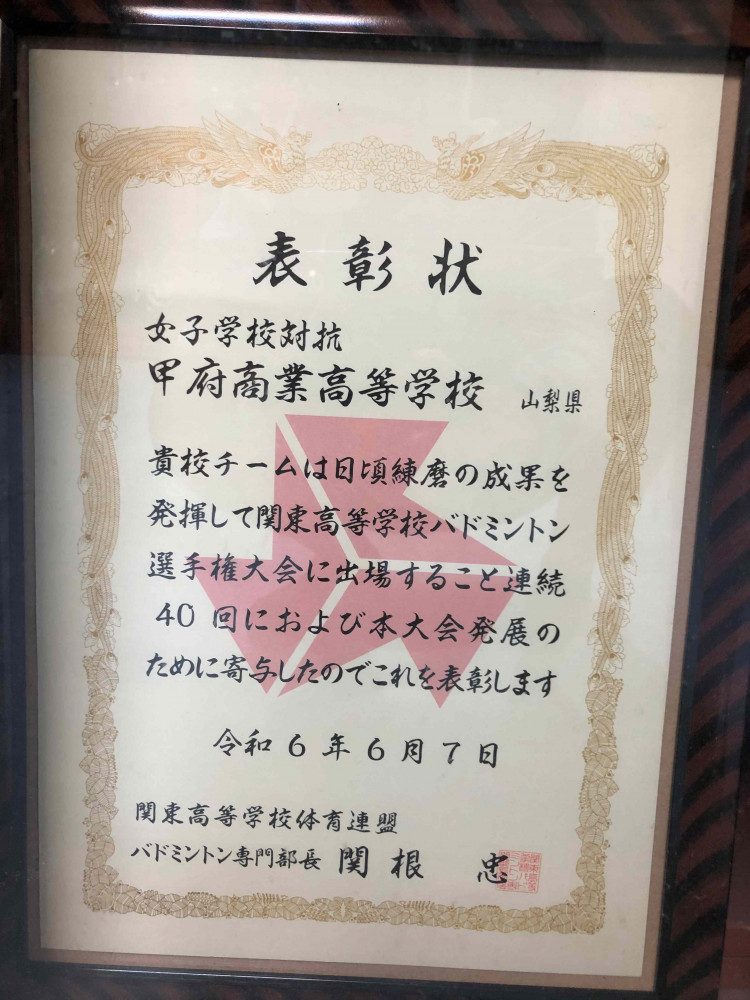 表彰状
女子学校対抗
甲府商業高等学校 山梨県
貴校チームは日頃練磨の成果を
発揮して関東高等学校バドミントン
選手権大会に出場すること連続
40回におよび本大会発展の
ために寄与したのでこれを表彰します
令和6年6月7日
関東高等学校体育連盟
バドミントン専門部長 関根 忠